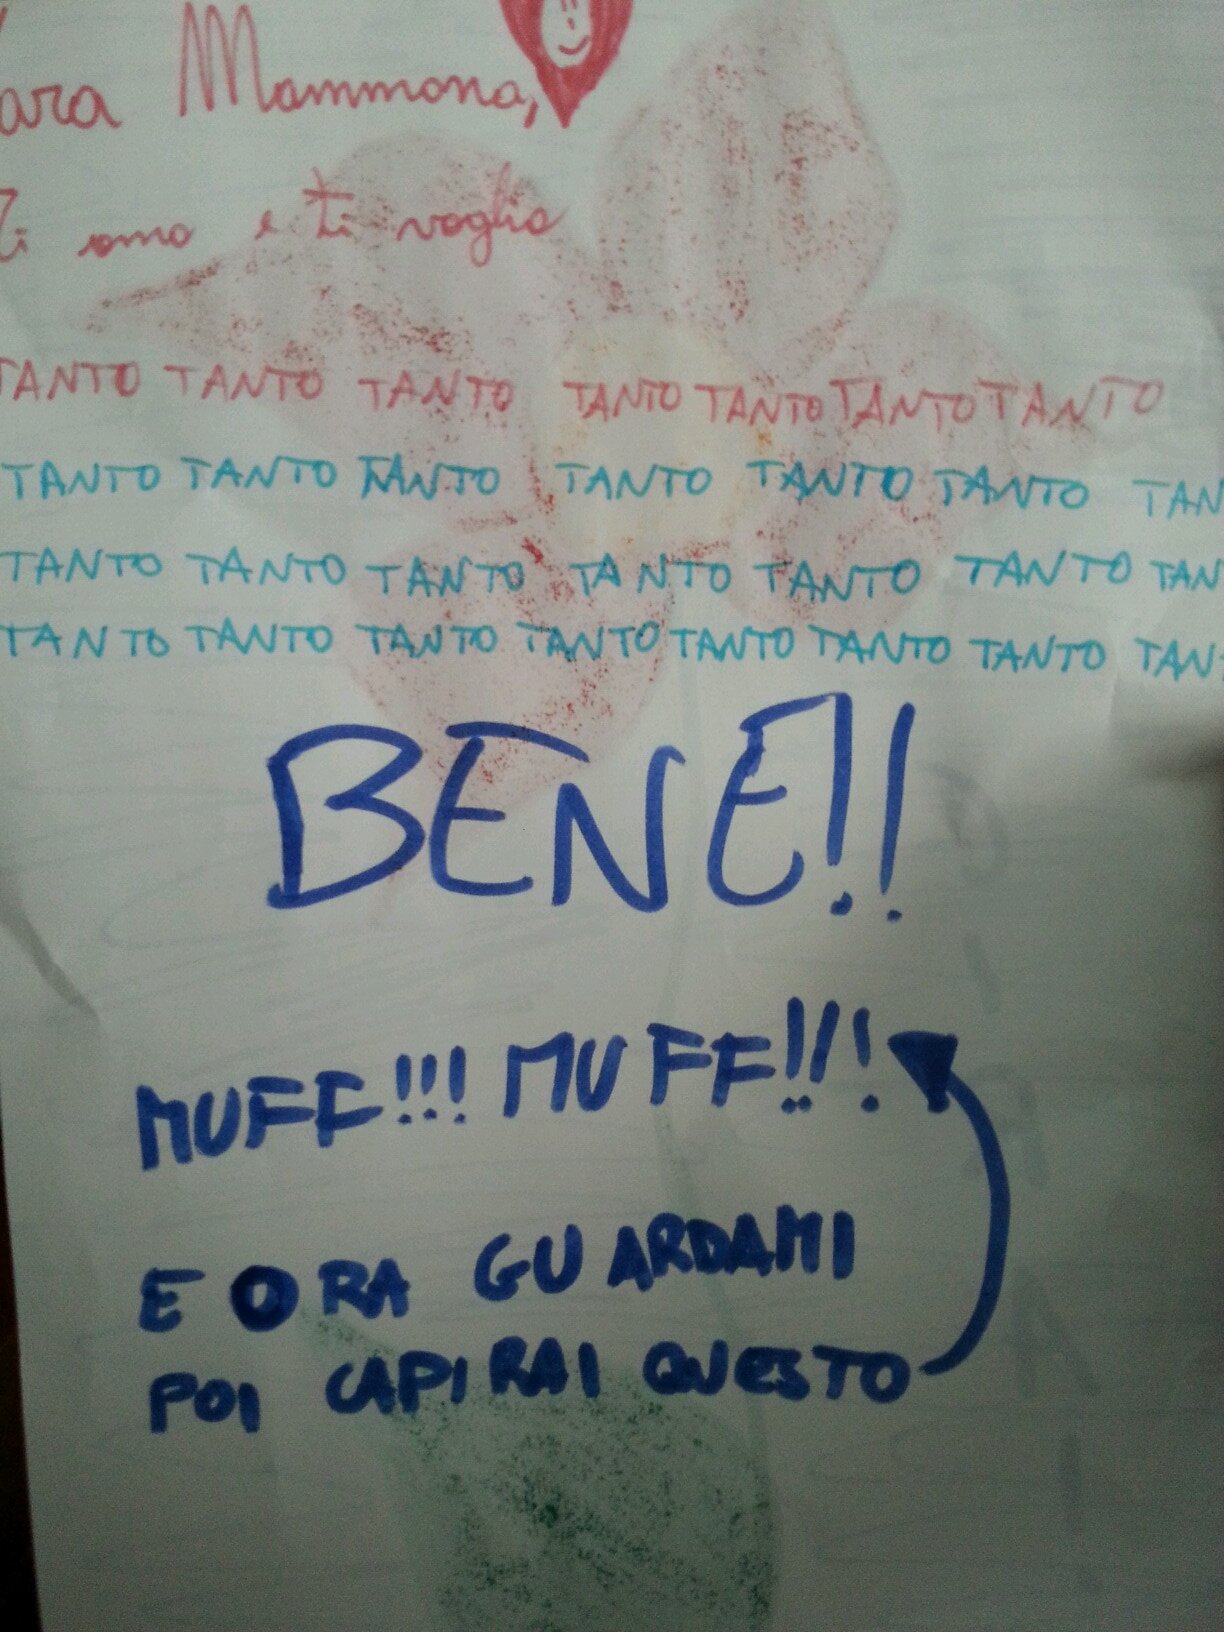 Cara Mammona,
Ti amo e ti voglio
TANTO TANTO TANTO TANTO TANTO TANTO TANTO
TANTO TANTO TANTO TANTO TANTO TANTO TAN
TANTO TANTO TANTO TANTO TANTO TANTO TAN
TANTO TANTO TANTO TANTO TANTO TANTO TANTO TANT
BENE!!
MUFF!!! MUFF!!!
E ORA GUARDAMI
POI CAPIRAI QUESTO